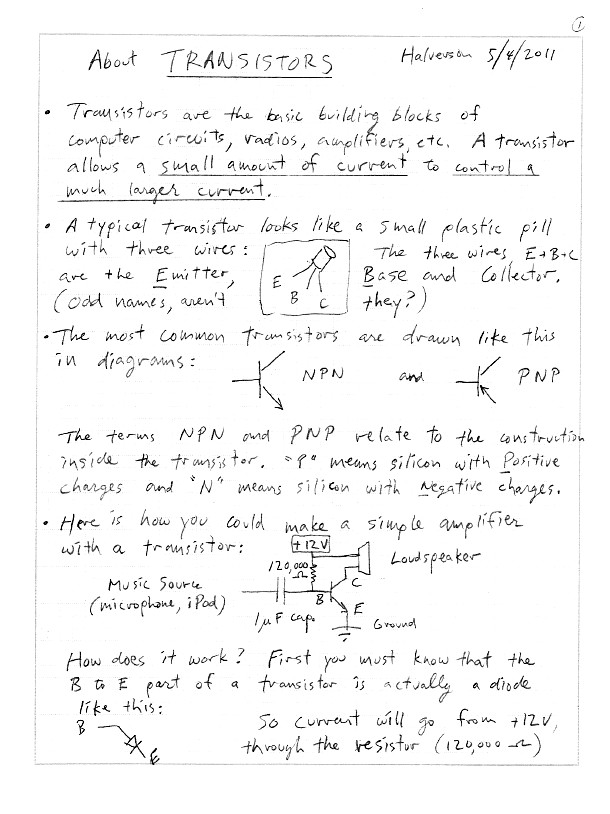 1
About TRANSISTORS
Halverson 5/4/2011
• Transistors are the basic building blocks of
computer circuits, radios, amplifiers, etc. A transistor
allows a small amount of current to control a
much larger current.
• A typical transistor looks like a small plastic pill
with three wires: The three wires, E+B+C
are the Emitter, Base and Collector.
(Odd names, aren't they?)
E
B
C
• The most common transistors are drawn like this
in diagrams: NPN and PNP
The terms NPN and PNP relate to the construction
inside the transistor. "P" means silicon with Positive
charges and "N" means silicon with Negative charges.
• Here is how you could make a simple amplifier
with a transistor:
+12V
Loudspeaker
120,000
Ω
Music Source
(microphone, iPod)
C
B
E
1μF cap.
Ground
How does it work? First you must know that the
B to E part of a transistor is actually a diode
like this:
B
E
So current will go from +12V,
through the resistor (120,000 Ω)